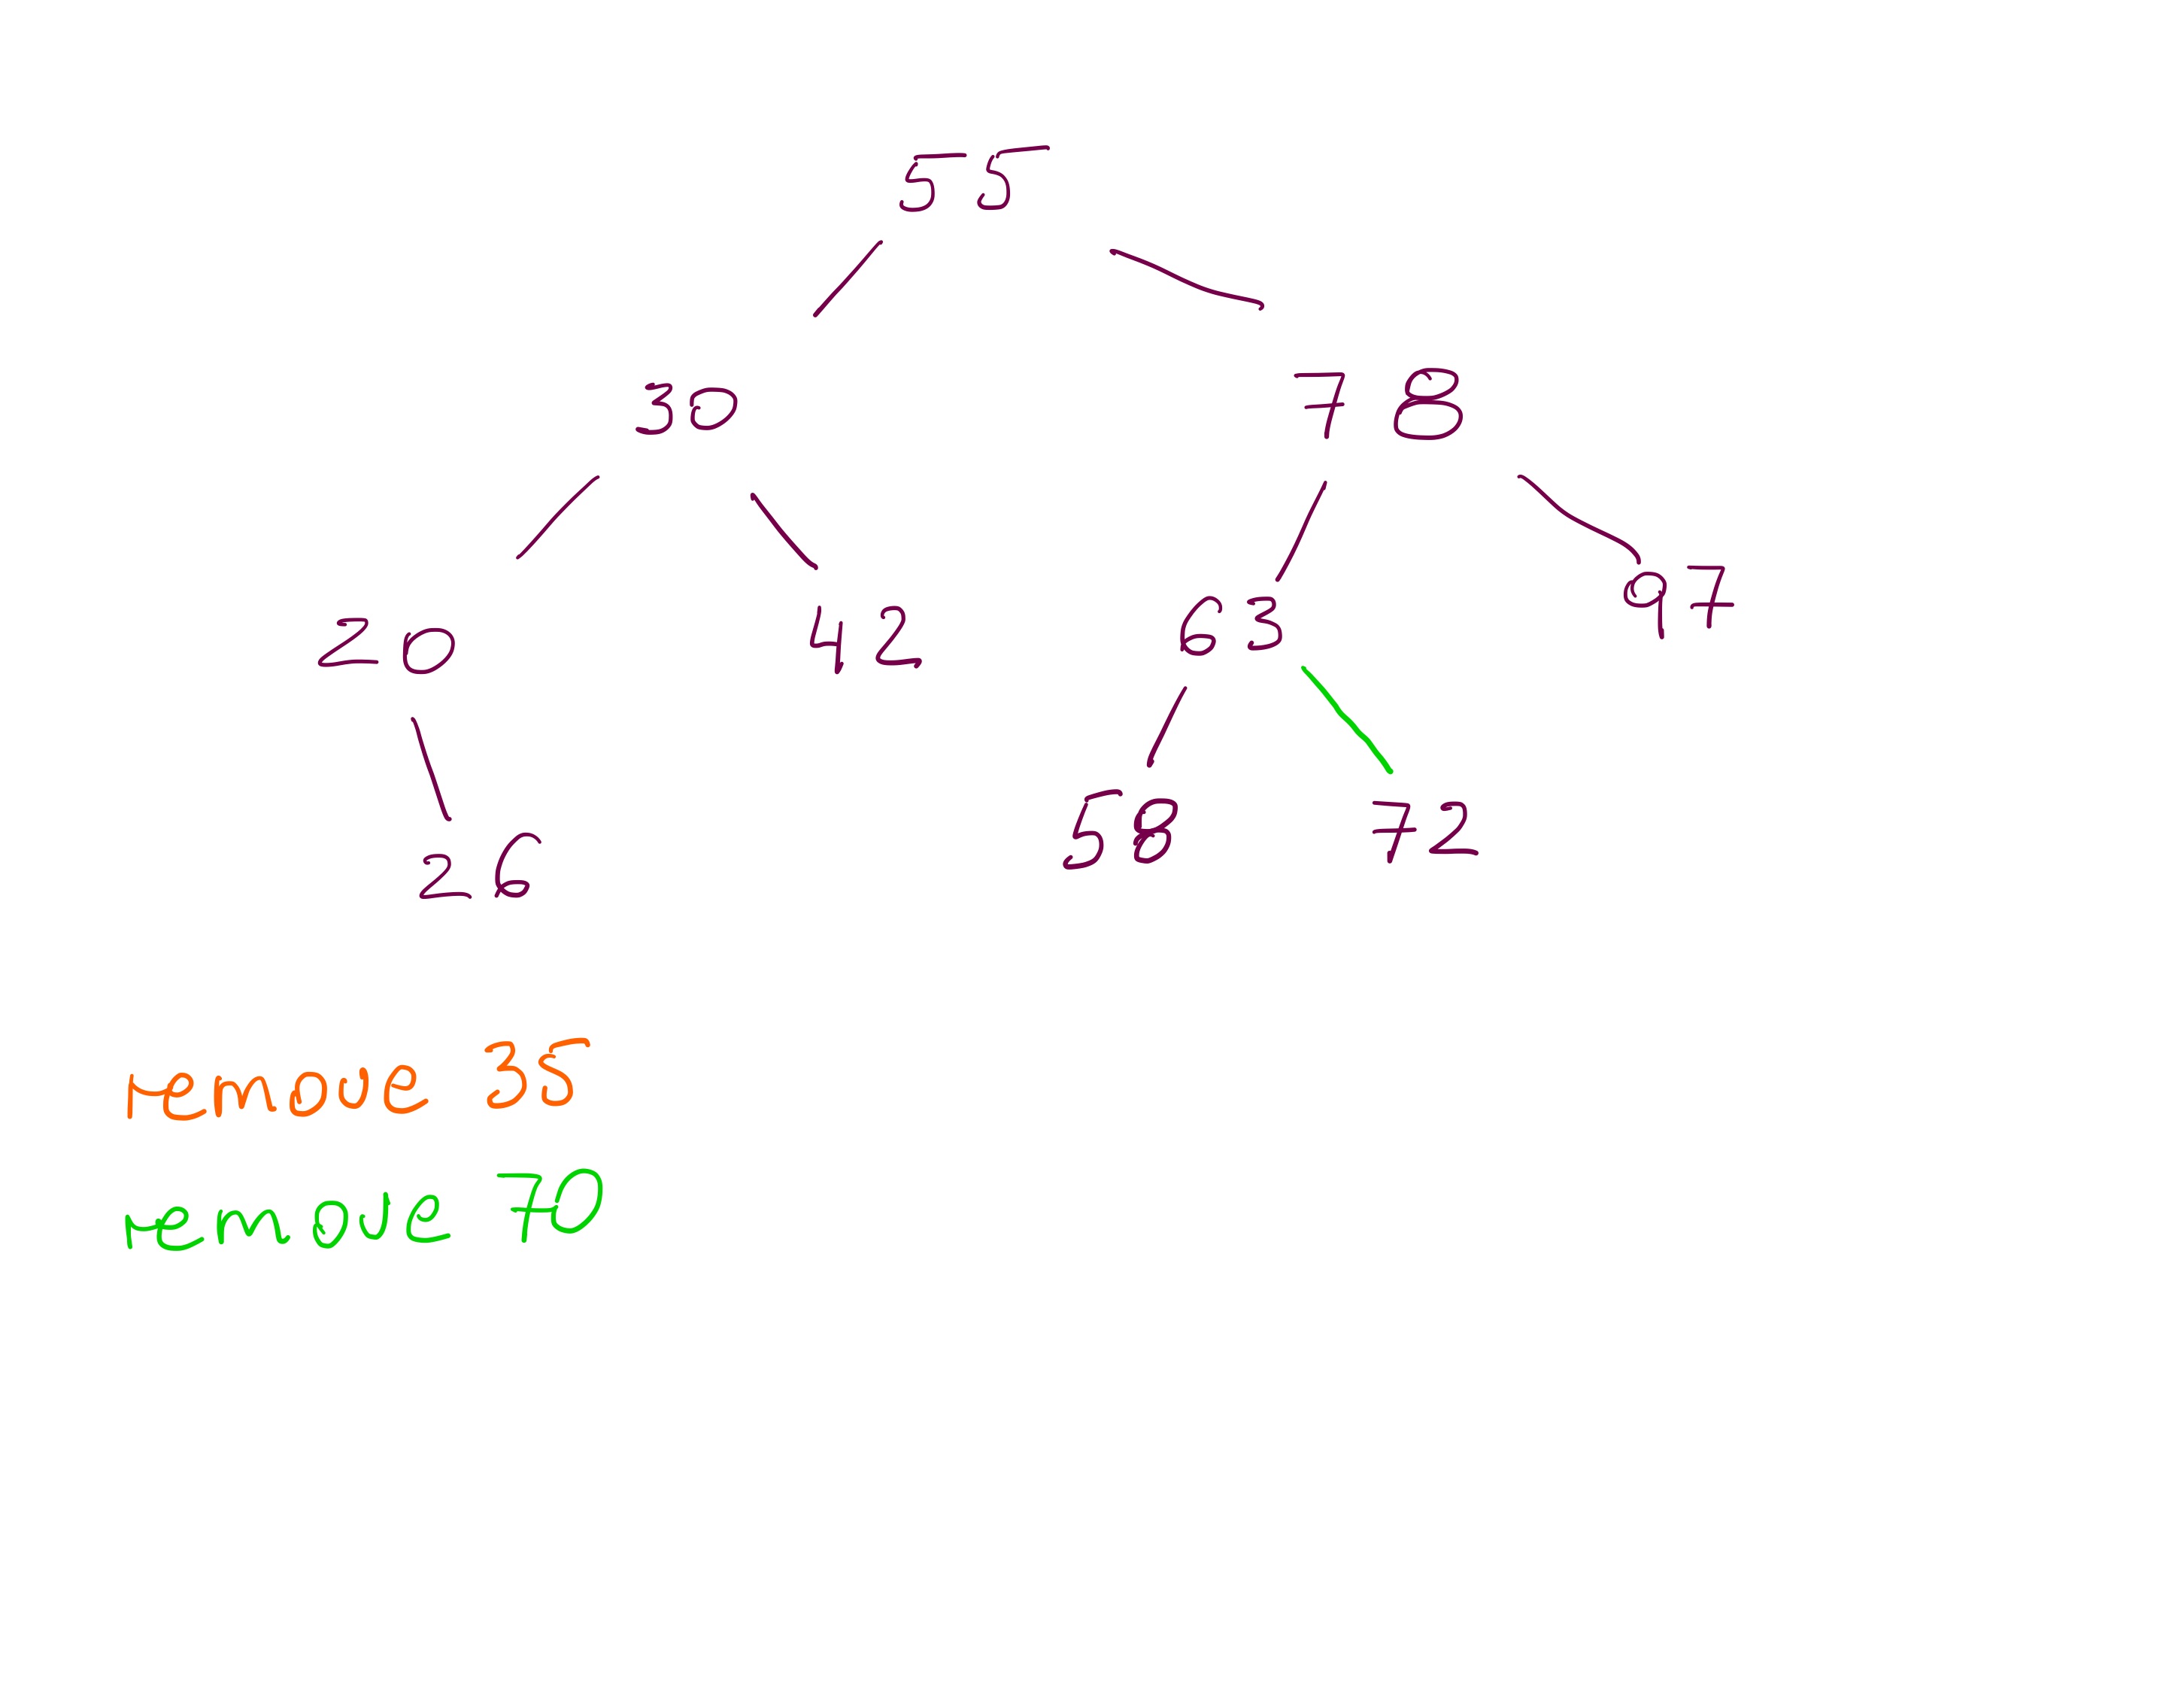 55
30 78
20 42 63 97
26 58 72
remove 35
remove 70